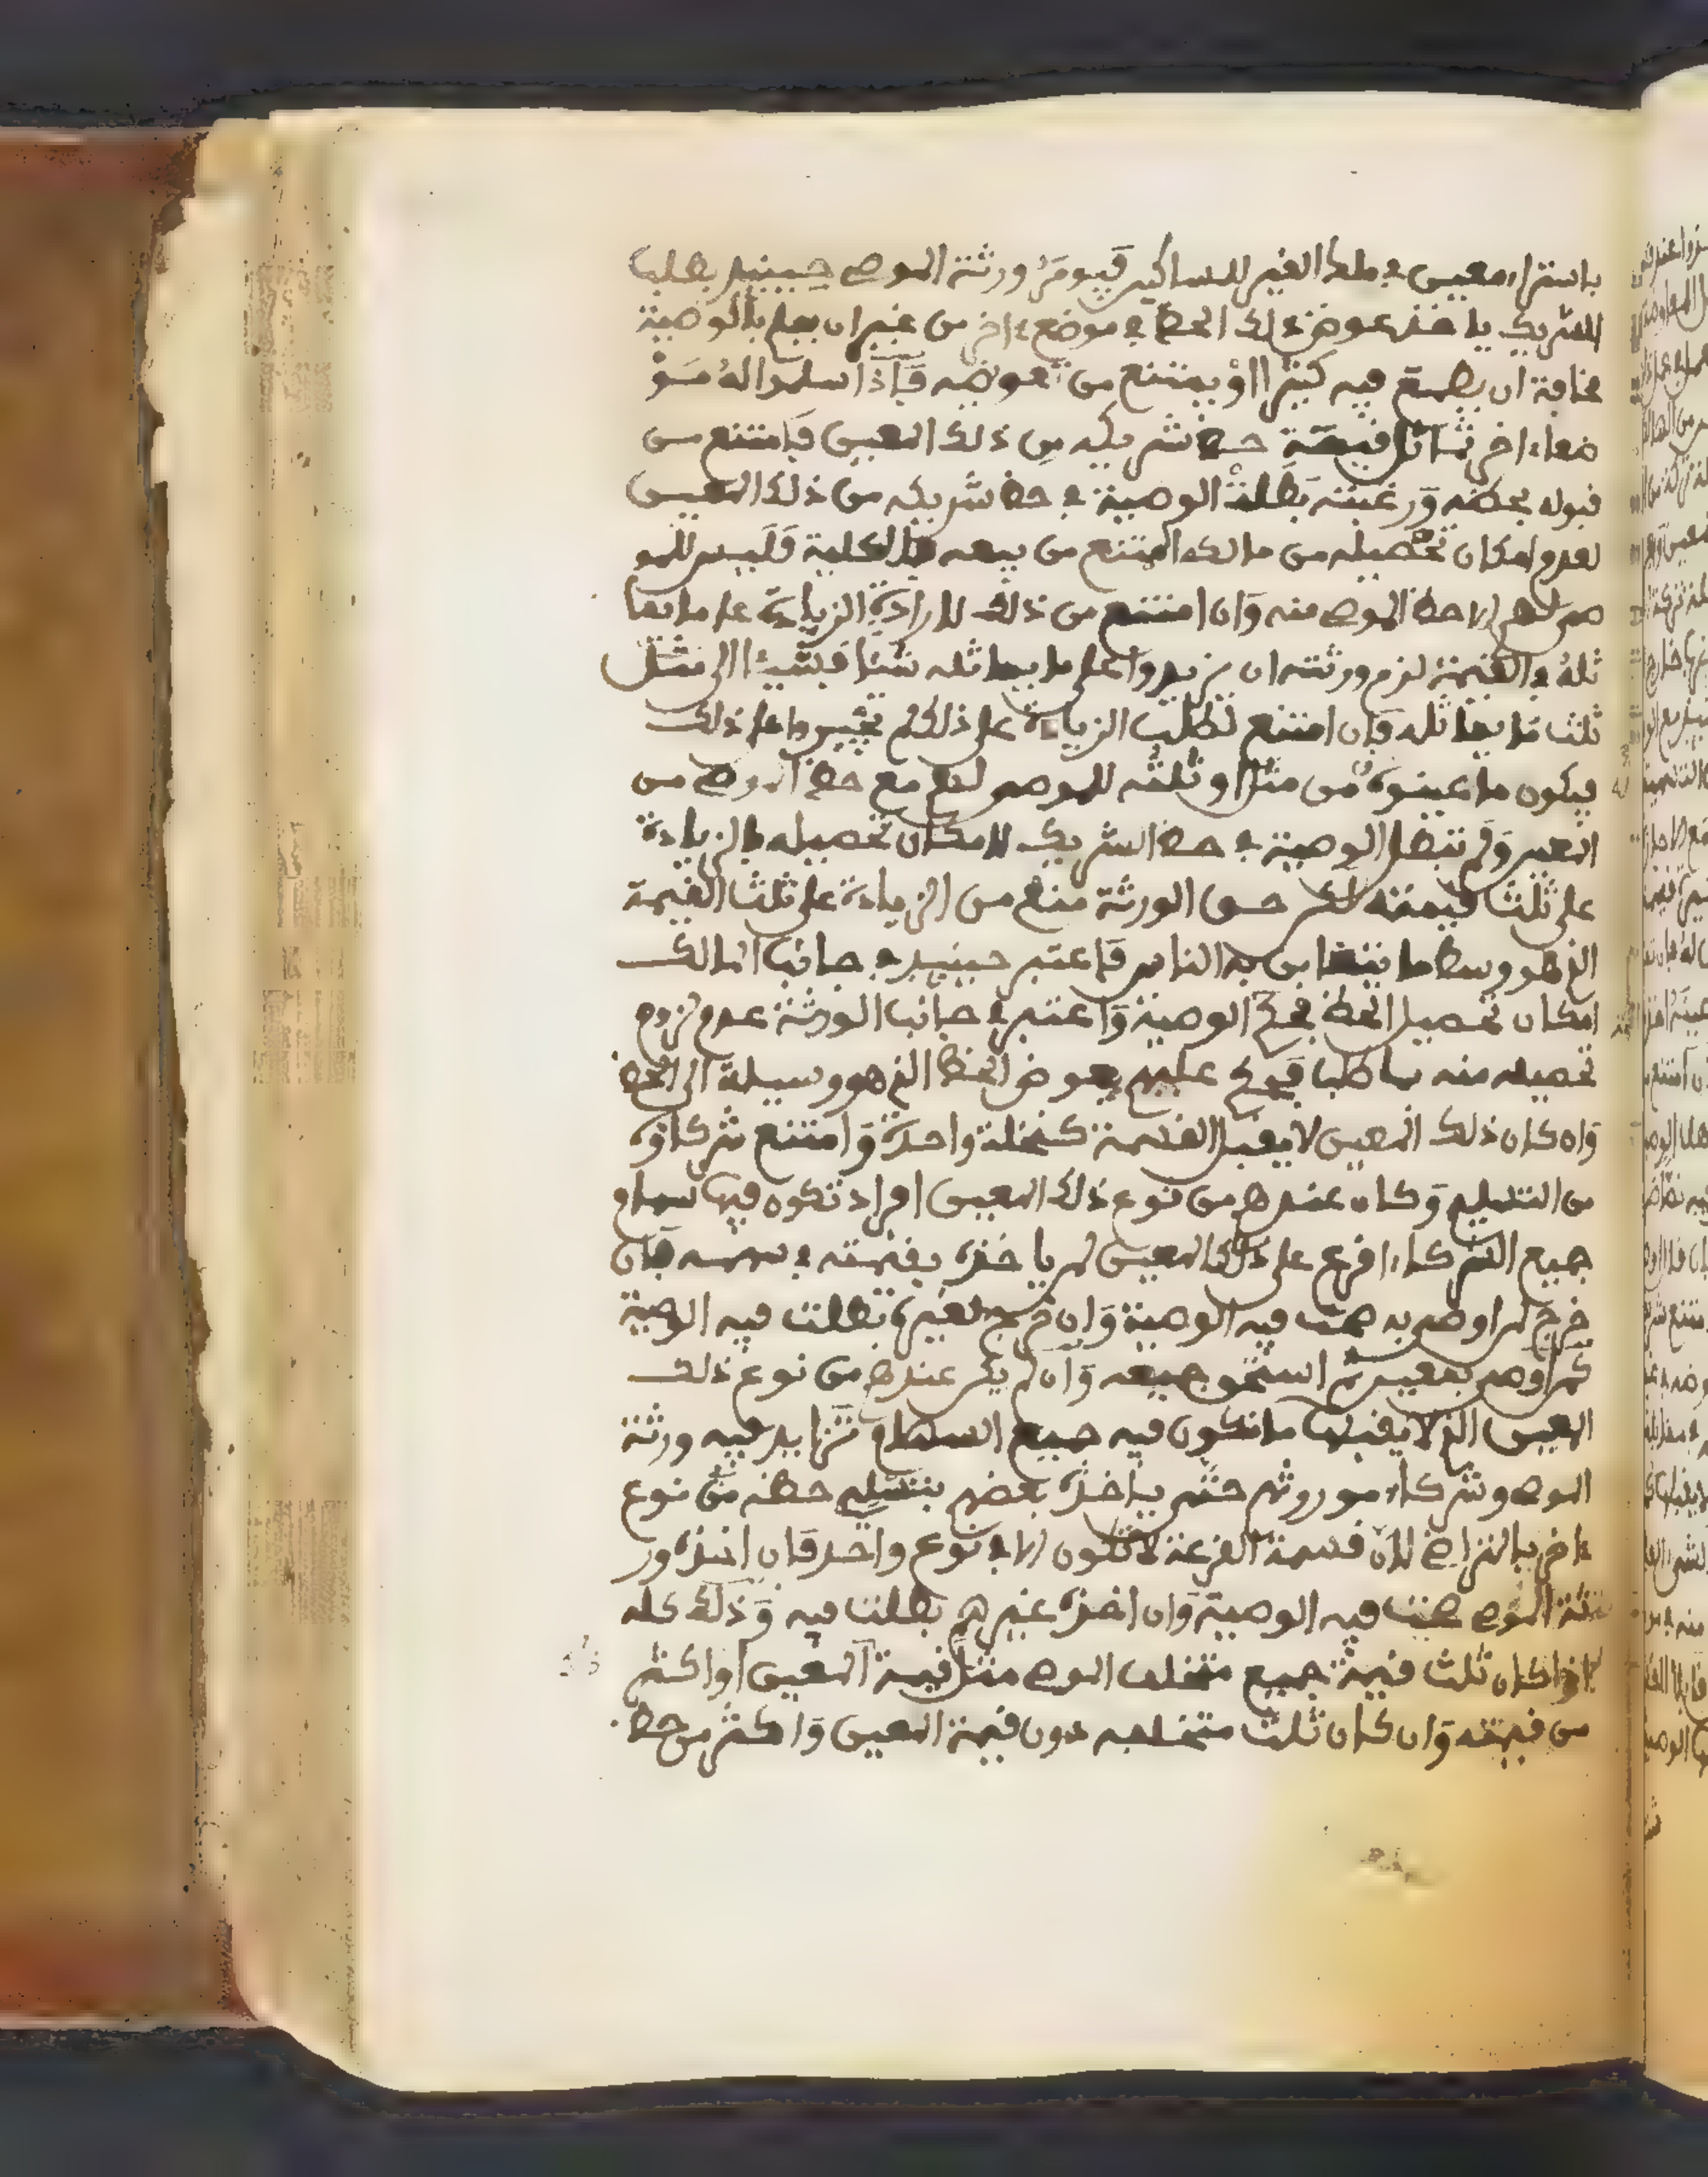 باشتراء معين في ملك الغير للمساكين فيومر ورثة الموصي حينئذ بطلب
الشريك ياخذ عوض ذلك الحظ في موضع ءاخر من غير ان يعلم بالوصية
مخافة ان يطمع فيه كثيرا او يمتنع من تعويضه فإذا سلموا له مو
ضعا ءاخر يماثل قيمة حظ شريكه من ذلك المعين فامتنع من
قبوله بحظه ورغبته بطلت الوصية في حظ شريكه من ذلك المعين
لعدم امكان تحصيله من مالكه الممتنع من بيعه بالكلية فليس للمو
صى لهم الا حظ الموصي منه وان امتنع من ذلك لارادة الزيادة على ما يما
ثله في القيمة لزم ورثته ان يزيدوا على ما يماثله شيئا فشيئا الى مثل
ثلث ما يماثله فإن امتنع لطلب الزيادة على ذلك لم يجبروا على ذلك
فيكون ما عينوه من مثل او ثلثه للموصى لهم مع حظ الموصي من
المعين ولم تبطل الوصية في حظ الشريك لامكان تحصيله بالزيادة
على ثلث قيمته لكن حق الورثة منع من الزيادة على ثلث القيمة
الذي هو وسط ما يتغابن به الناس فاعتبر حينئذ في جانب المالك
امكان تحصيل الحظ فصح الوصية واعتبر في جانب الورثة عدم لزوم
تحصيله منه بما طلب فحكم عليهم بعوض الحظ الذي هو وسيلة الى الحظ
وان كان ذلك المعين لا يقبل القسمة كنخلة واحدة وامتنع شركاؤه
من التسليم وكان عندهم من نوع ذلك المعين افراد تكون فيها سهام
جميع الشركاء اقرع على ذلك المعين لمن ياخذه بقيمته في سهمه فإن
خرج لمن اوصى به صحت فيه الوصية وان خرج لغيره بطلت فيه الوصية
كمن اوصى بمعين ثم استحق جميعه وان لم يكن عندهم من نوع ذلك
المعين الذي لا يقبلها ما تكون فيه جميع السهام تزايد فيه ورثة
الموصي وشركاء موروثهم حتى ياخذه بعضهم بتسليم حظه من نوع
ءاخر بالتراضي لان قسمة القرعة لا تكون الا في نوع واحد فان اخذه ور
ثة الموصي صحت فيه الوصية وان اخذه غيرهم بطلت فيه وذلك كله
اذا كان ثلث قيمة جميع متخلف الموصي مثل قيمة المعين او اكثر
من قيمته وان كان ثلث متخلفه دون قيمة المعين واكثر من حظ